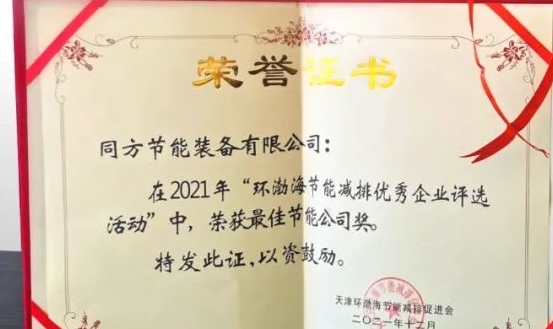 荣誉证书
同方节能装备有限公司：
在2021年“环渤海节能减排优秀企业评选
活动”中，荣获最佳节能公司奖。
特发此证，以资鼓励。
天津环渤海节能减排促进会
二〇二一年十二月